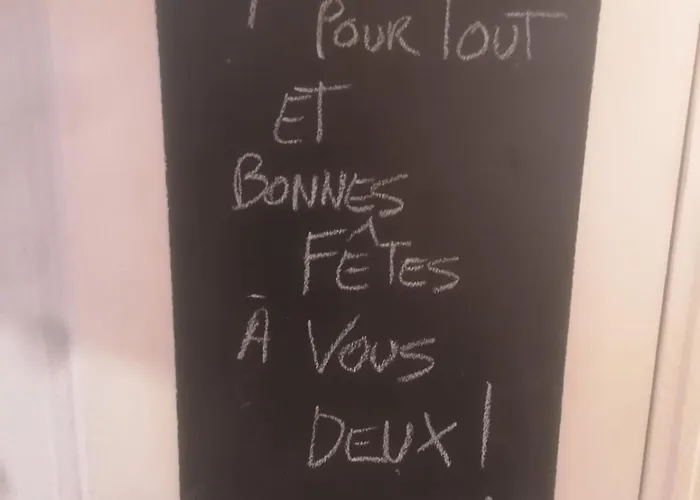 POUR TOUT
ET
BONNES
FÊTES
À VOUS
DEUX!